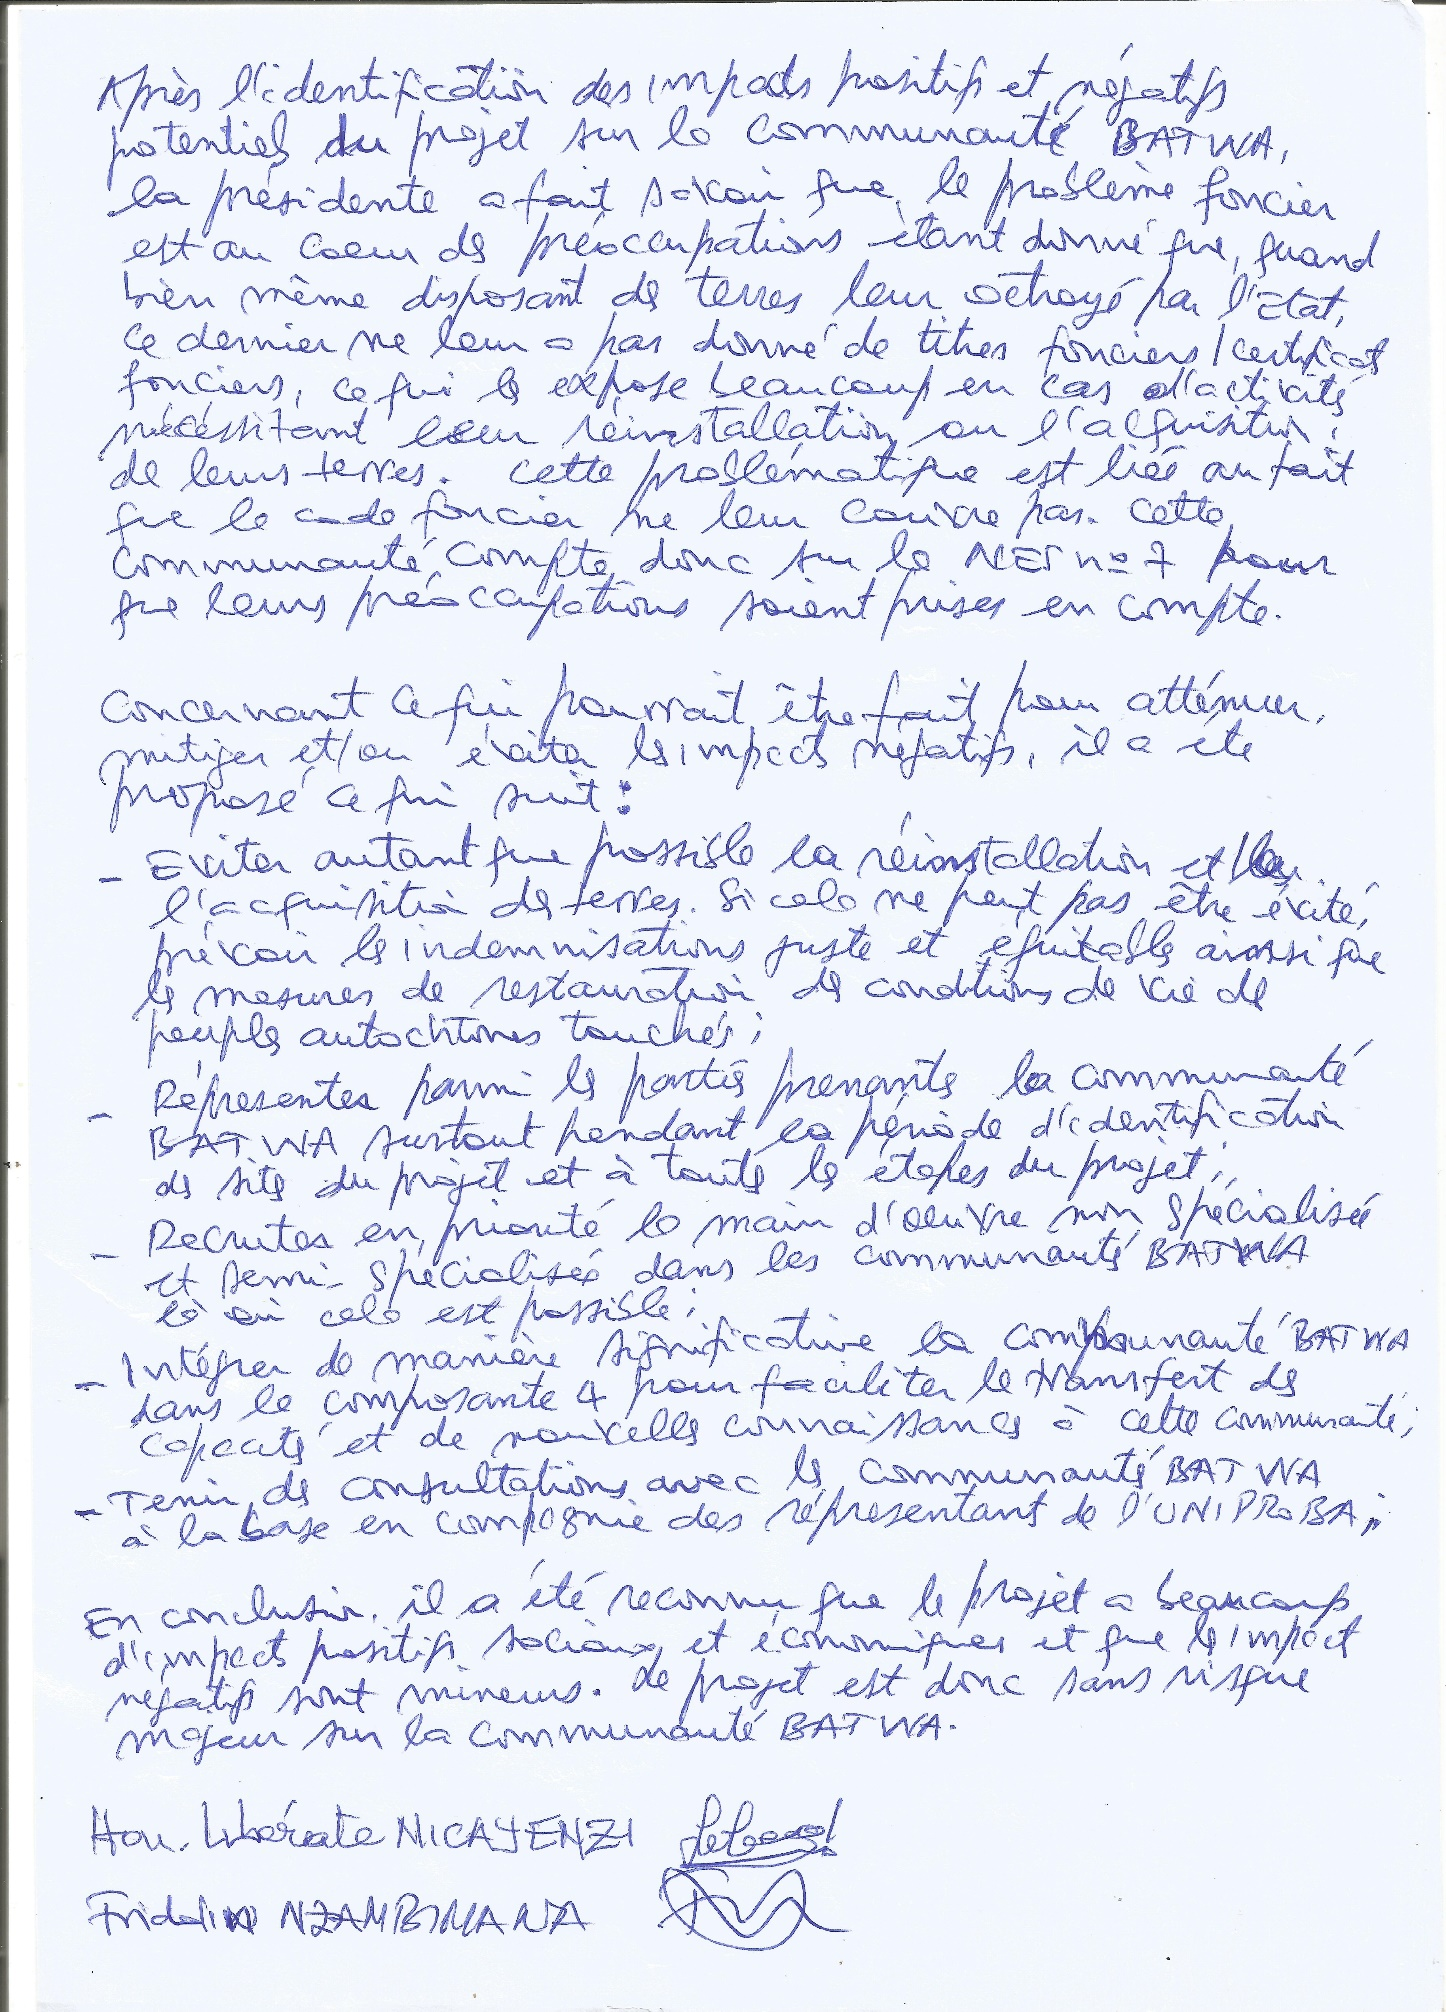 Après l'identification des impacts positifs et négatifs
potentiels du projet sur la communauté BATWA,
la présidente a fait savoir que, le problème foncier
est au coeur de préoccupations étant donné que, quand
bien même disposant de terres leur octroyé par l'Etat,
ce dernier ne leur a pas donné de titres fonciers/certificat
fonciers, ce qui les expose beaucoup en cas d'activités
nécéssitant leur réinstallation ou l'acquisition
de leurs terres. Cette problématique est liée au fait
que le code foncier ne leur couvre pas. Cette
communauté compte donc sur la NES no 7 pour
que leurs préoccupations soient prises en compte.
Concernant ce qui pourrait être fait pour atténuer,
mitiger et/ou éviter les impacts négatifs, il a été
proposé ce qui suit :
- Eviter autant que possible la réinstallation et/ou
l'acquisition des terres. Si cela ne peut pas être évité,
prévoir les indemnisations juste et équitable ainsi que
les mesures de restauration des conditions de vie des
peuples autochtones touchés ;
- Réprésenter parmi les parties prenantes la communauté
BATWA surtout pendant la période d'identification
des sites du projet et à toutes les étapes du projet ;
- Recruter en priorité la main d'oeuvre non spécialisée
et semi-spécialisée dans les communautés BATWA
là où cela est possible ;
- Intégrer de manière significative la communauté BATWA
dans la composante 4 pour faciliter le transfert des
capacités et de nouvelles connaissances à cette communauté ;
- Tenir des consultations avec les communautés BATWA
à la base en compagnie des réprésentant de l'UNIPROBA ;
En conclusion, il a été reconnu que le projet a beaucoup
d'impacts positifs sociaux et économiques et que les impact
négatifs sont mineurs. Le projet est donc sans risque
majeur sur la communauté BATWA.
Hon. Libérate NICAYENZI
Fridolin NZAMBIMANA